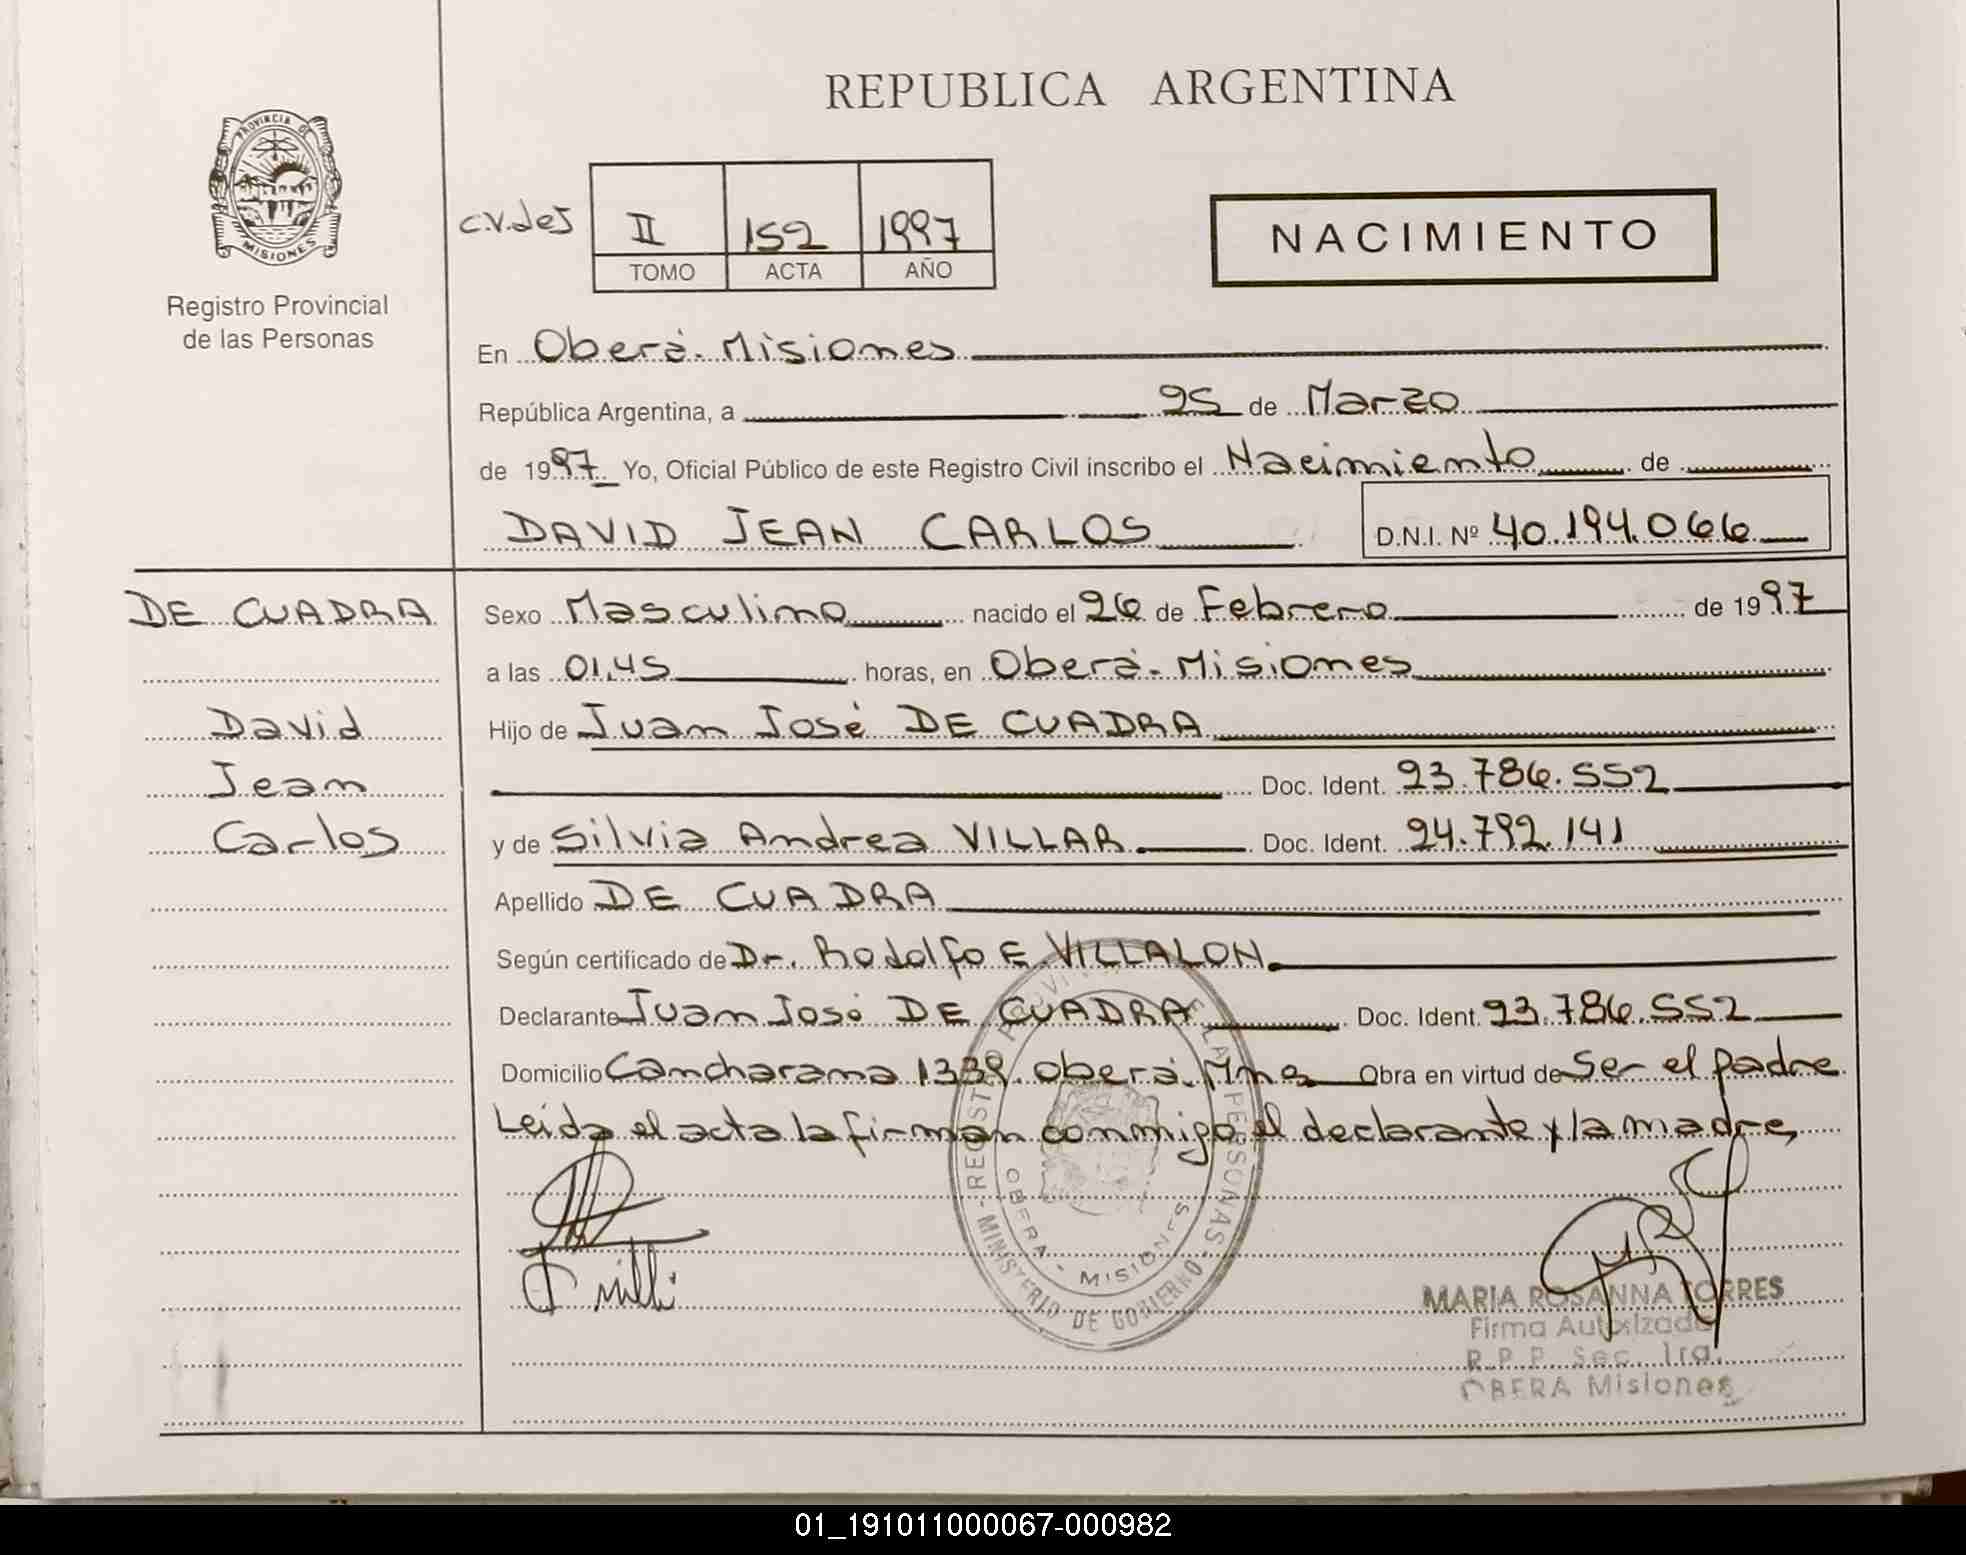 REPUBLICA ARGENTINA
PROVINCIA DE
MISIONES
Registro Provincial
de las Personas
C.V. de J
II 152 1997
TOMO ACTA AÑO
NACIMIENTO
En Oberá - Misiones
República Argentina, a 25 de Marzo
de 1997 Yo, Oficial Público de este Registro Civil inscribo el Nacimiento de
DAVID JEAN CARLOS D.N.I. Nº 40.194.066
DE CUADRA
David
Jean
Carlos
Sexo Masculino nacido el 26 de Febrero de 1997
a las 01,45 horas, en Oberá - Misiones
Hijo de Juan José DE CUADRA
Doc. Ident. 23.786.552
y de Silvia Andrea VILLAR Doc. Ident. 24.792.141
Apellido DE CUADRA
Según certificado de Dr. Rodolfo E. VILLALON
Declarante Juan José DE CUADRA Doc. Ident. 23.786.552
Domicilio Cancharana 1339. Oberá. Mnes Obra en virtud de Ser el padre
Leida el acta la firman conmigo el declarante y la madre
REGISTRO PROVI E LAS PERSONAS - MINISTERIO DE GOBIERNO -
OBERA - MISIONES
MARIA ROSANNA TORRES
Firma Autorizada
R.P.P. Sec. 1ra.
OBERA Misiones
01_191011000067-000982